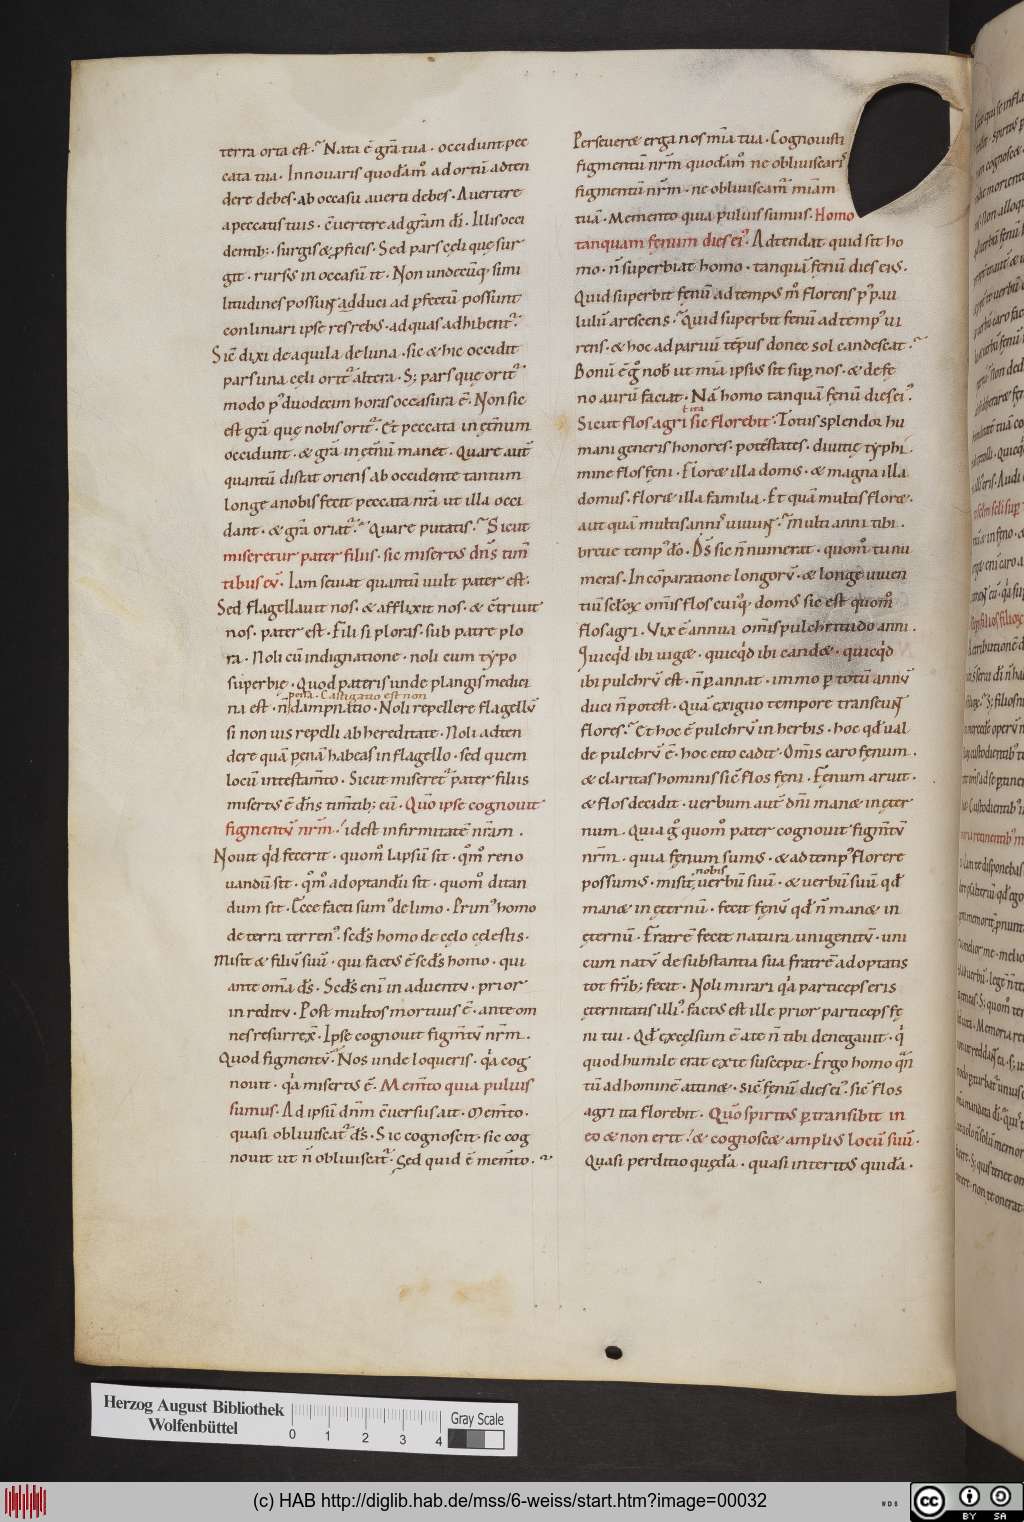 terra orta est. Nata ē gr̄a tua. occidunt pec
cata tua. Innouaris quodā m̊ ad ortū. adten
dere debes. ab occasu auerti debes. Auertere
a peccatis tuis. c̄uertere ad grām dī. Illis occi
dentib; surgis & ꝓficis. Sed pars cęli quę sur
git. rursꝰ in occasū it. Non undecūq, simi
litudines possunt adduci ad ꝑfectū possunt
conliniari ipse res rebꝰ. ad quas adhibent᷑.
Sic̄ dixi de aquila de luna. sic & hic occidit
pars una cęli orit᷑ altera. S; pars quę orit᷑
modo pꝰ duodecim horas occasura ē. Non sic
est gr̄a quę nobis orit᷑. Et peccata in ęt̄num
occidunt. & gr̄a in ęt̄nū manet. Quare aut̄
quantū distat oriens ab occidente tantum
longe a nobis fecit peccata nr̄a ut illa occi
dant. & gr̄a oriat᷑. Quare putatis. Sicut
miseretur pater filiis. sic misertꝰ dn̄s tim̄
tibus eū. Iam sęuiat quantū uult pater est.
Sed flagellauit nos. & afflixit nos. & c̄triuit
nos. pater est. Fili si ploras. sub patre plo
ra. Noli cū indignatione. noli cum typo
superbię. Quod pateris unde plangis medici
pena. Castigatio est non
na est. n̄ dampnatio. Noli repellere flagellū
si non uis repelli ab hereditate. Noli adten
dere quā penā habeas in flagello. sed quem
locū in testam̄to. Sicut miseret᷑ pater filiis
misertꝰ ē dn̄s timtib; eū. Quō ipse cognouit
figmentū nr̄m. idest infirmitatē nr̄am.
Nouit qd̄ fecerit. quom̊ lapsū sit. qm̊ reno
uandū sit. qm̊ adoptandū sit. quom̊ ditan
dum sit. Ecce facti sumꝰ de limo. Primꝰ homo
de terra terrenꝰ. sedꝰ homo de cęlo cęlestis.
Misit & filiū suū. qui factꝰ ē sedꝰ homo. qui
ante om̄a ds̄. Sedꝰ eni in aduentu. prior
in reditu. Post multos mortuus ē. ante om
nes resurrex̄. Ipse cognouit figm̄tū nr̄m.
Quod figmentū. Nos unde loqueris. qa cog
nouit. qa misertꝰ ē. Mem̄to quia puluis
sumus. Ad ipsū dn̄m c̄uersus ait. Mem̄to.
quasi obliuiscat᷑ ds̄. Sic cognoscit. sic cog
nouit ut n̄ obliuiscat᷑. Sed quid ē mem̄to.
Perseueret erga nos mīa tua. Cognouisti
figmentū nr̄m quodā m̊ ne obliuiscaris
figmentū nr̄m. ne obliuiscam᷑ miām
tuā. Memento quia puluis sumus. Homo
tanquam fęnum dies eiꝰ. Adtendat quid sit ho
mo. n̄ superbiat homo. tanquā fęnū dies eiꝰ.
Quid superbit fęnū ad tempꝰ m̊ florens pꝰ pau
lulū arescens. Quid superbit fenū ad tempꝰ ui
rens. & hoc ad paruū tēpus donec sol candescat.
Bonū ē g̊ nob ut mīa ipsiꝰ sit suꝑ nos. & de fę
no aurū faciat. Nā homo tanquā fęnū dies eiꝰ.
ł ita
Sicut flos agri sic florebit. Totus splendor hu
mani generis honores. potestates. diuitię typhi.
minę flos fęni. Floret illa domꝰ. & magna illa
domus. floret illa familia. Et quā multis floret.
aut quā multis annis uiuunt. Multi anni tibi.
breue tempꝰ do. Ds̄ sic n̄ numerat. quom̊ tu nu
meras. In cōparatione longorū. & longe uiuen
tiū sclox om̄is flos cuiꝰq domꝰ sic est quom̊
flos agri. Vix ē annua omīs pulchritudo anni.
Quicqd ibi uiget. quicqd ibi candet. quicqd
ibi pulchrū est. n̄ ꝑannat. immo ꝑ totū annū
duci n̄ potest. Quā exiguo tempore transeunt
flores. Et hoc ē pulchrū in herbis. hoc qd̄ ual
de pulchrū ē. hoc cito cadit. Om̄is caro fęnum.
& claritas hominis sic̄ flos feni. Fęnum aruit.
& flos decidit. uerbum aut̄ dn̄i manet in ęter
num. Quia g̊ quom̊ pater cognouit figm̄tū
nr̄m. quia fęnum sumꝰ. & ad tempꝰ florere
nobis
possumꝰ. misit, uerbū suū. & uerbū suū qd̄
manet in ęternū. fecit fęnū qd̄ n̄ manet in
ęternū. Fratrē fecit natura unigenitū. uni
cum natū de substantia sua fratrē adoptatis
tot frīb; fecit. Noli mirari qa particeps eris
ęternitatis illiꝰ. factꝰ est ille prior particeps fę
ni tui. Qd̄ excęlsum ē a te n̄ tibi denegauit. q̄
quod humile erat ex te suscepit. Ergo homo qn̄
tū ad hominē attinet. sic̄ fęnū dies eiꝰ. sic̄ flos
agri ita florebit. Quō spiritꝰ ꝑtransibit in
eo & non erit. & cognoscet ampliꝰ locū suū.
Quasi perditio quęda. quasi interitꝰ quida.
Herzog August Bibliothek
Wolfenbüttel
0 1 2 3 4
Gray Scale
(c) HAB http://diglib.hab.de/mss/6-weiss/start.htm?image=00032
WDB
cc BY SA